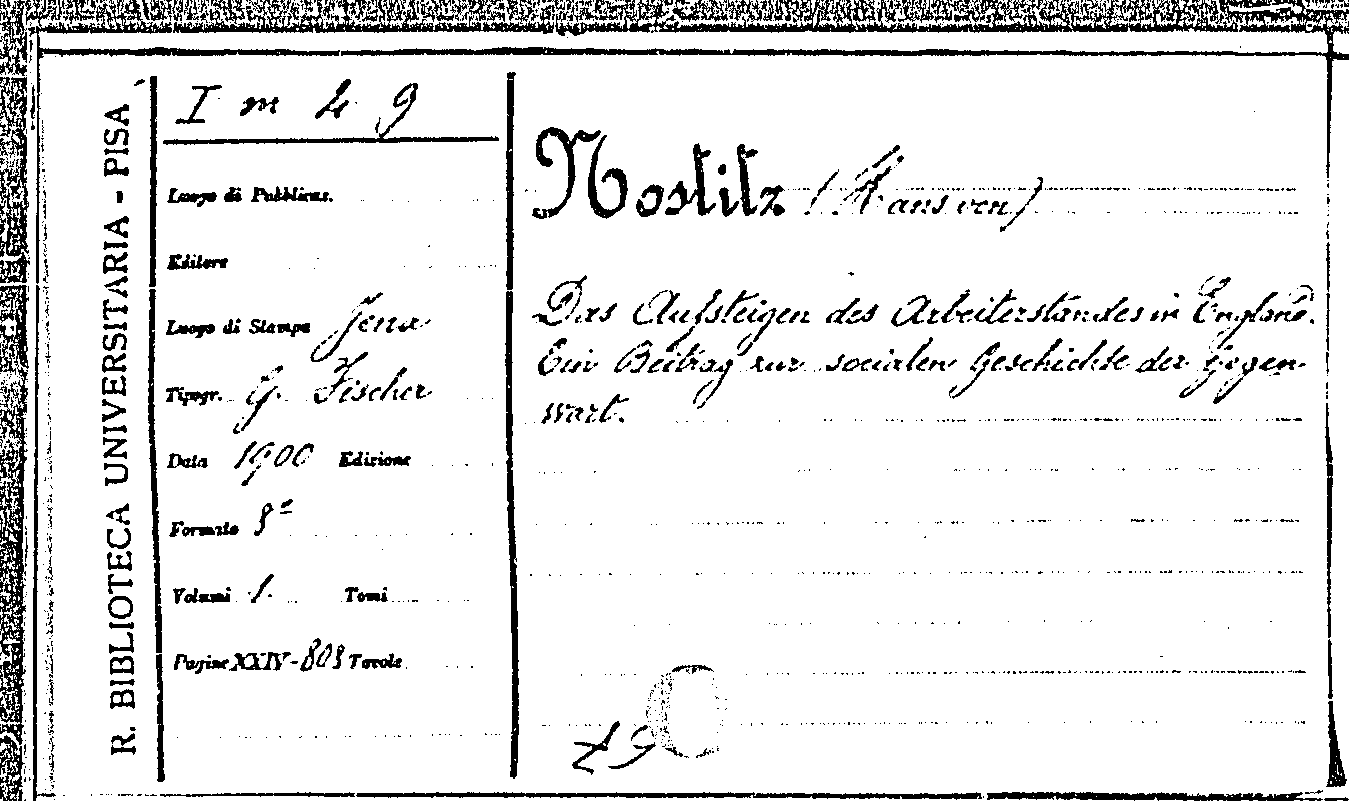 R. BIBLIOTECA UNIVERSITARIA - PISA
I m 4 9
Luogo di Pubblicaz.
Editore
Luogo di Stampa Jena
Tipogr. G. Fischer
Data 1900 Edizione
Formato 8°
Volumi 1. Tomi
Pagine XXIV-808 Tavole
Nostitz (Hans von)
Das Aufsteigen des Arbeiterstandes in England.
Ein Beitrag zur socialen Geschichte der Gegen
wart.